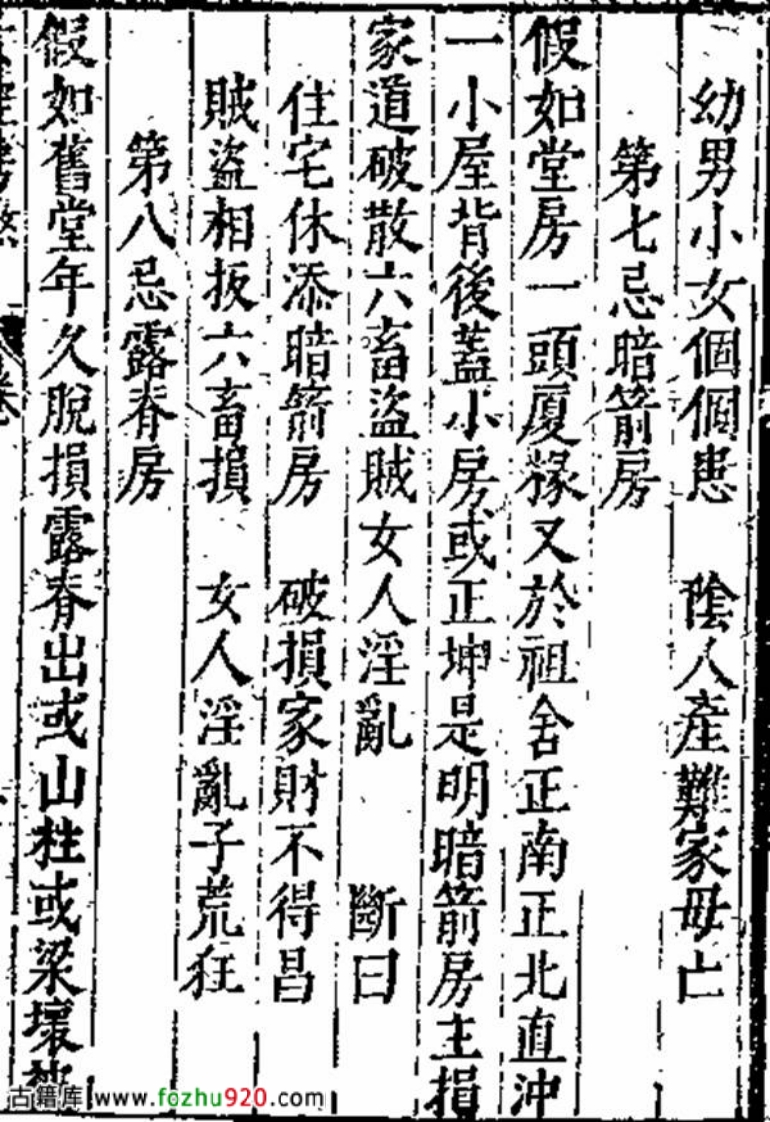 幼男小女個個患　陰人產難家母亡
第七忌暗箭房
假如堂房一頭厦椽又於祖舍正南正北直沖
一小屋背後蓋小房或正坤是明暗箭房主損
家道破散六畜盜賊女人淫亂　斷曰
住宅休添暗箭房　破損家財不得昌
賊盜相扳六畜損　女人淫亂子荒狂
第八忌露脊房
假如舊堂年久脫損露脊出或山柱或梁壞
古籍库 www.fozhu920.com